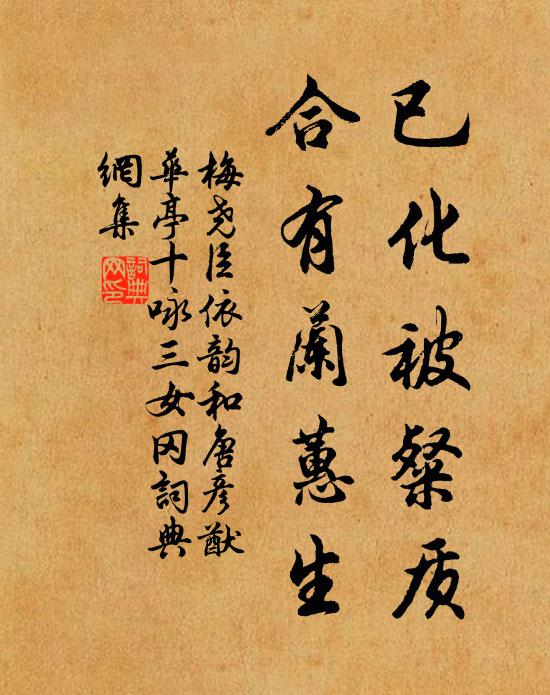 已化被粲质
合有蘭蕙生
梅尧臣依韵和唐彦猷
華亭十咏三女冈詞典
網集
詞典网印